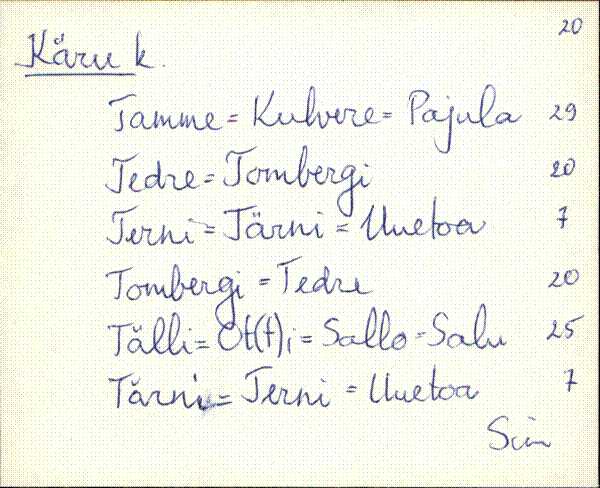 20
Käru k.
Tamme = Kulvere = Pajula 29
Tedre = Tombergi 20
Terni = Tärni = Uuetoa 7
Tombergi = Tedre 20
Tälli = Ot(t)i = Sallo = Salu 25
Tärni = Terni = Uuetoa 7